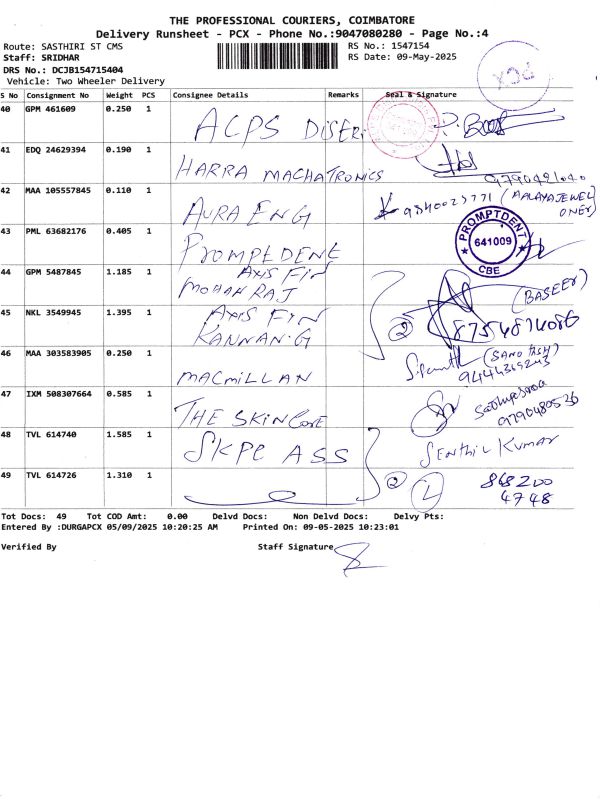 THE PROFESSIONAL COURIERS, COIMBATORE
Delivery Runsheet - PCX - Phone No.:9047080280 - Page No.:4
Route: SASTHIRI ST CMS
RS No.: 1547154
Staff: SRIDHAR
RS Date: 09-May-2025
DRS No.: DCJB154715404
Vehicle: Two Wheeler Delivery
PCX
S No Consignment No Weight PCS Consignee Details Remarks Seal & Signature
40 GPM 461609 0.250 1 ACPS DISERI
41 EDQ 24629394 0.190 1 HARRA MACHATRONICS 9790491040
42 MAA 105557845 0.110 1 AURA ENG 9840023771 (AALAYAJEWEL ONER)
43 PML 63682176 0.405 1 PROMPEDENE PROMPTDENT 641009 CBE
44 GPM 5487845 1.185 1 AXIS FIN MOHAN RAJ (BASEER)
45 NKL 3549945 1.395 1 AXIS FIN KANNAN.G 2 8754874086
46 MAA 303583905 0.250 1 MACMILLAN (SANOTASH) 9444369243
47 IXM 508307664 0.585 1 THE SKIN CORE 9790480526
48 TVL 614740 1.585 1 SKPC ASS SENTHIL KUMAR
49 TVL 614726 1.310 1 2 868200 4748
Tot Docs: 49 Tot COD Amt: 0.00 Delvd Docs: Non Delvd Docs: Delvy Pts:
Entered By :DURGAPCX 05/09/2025 10:20:25 AM Printed On: 09-05-2025 10:23:01
Verified By Staff Signature